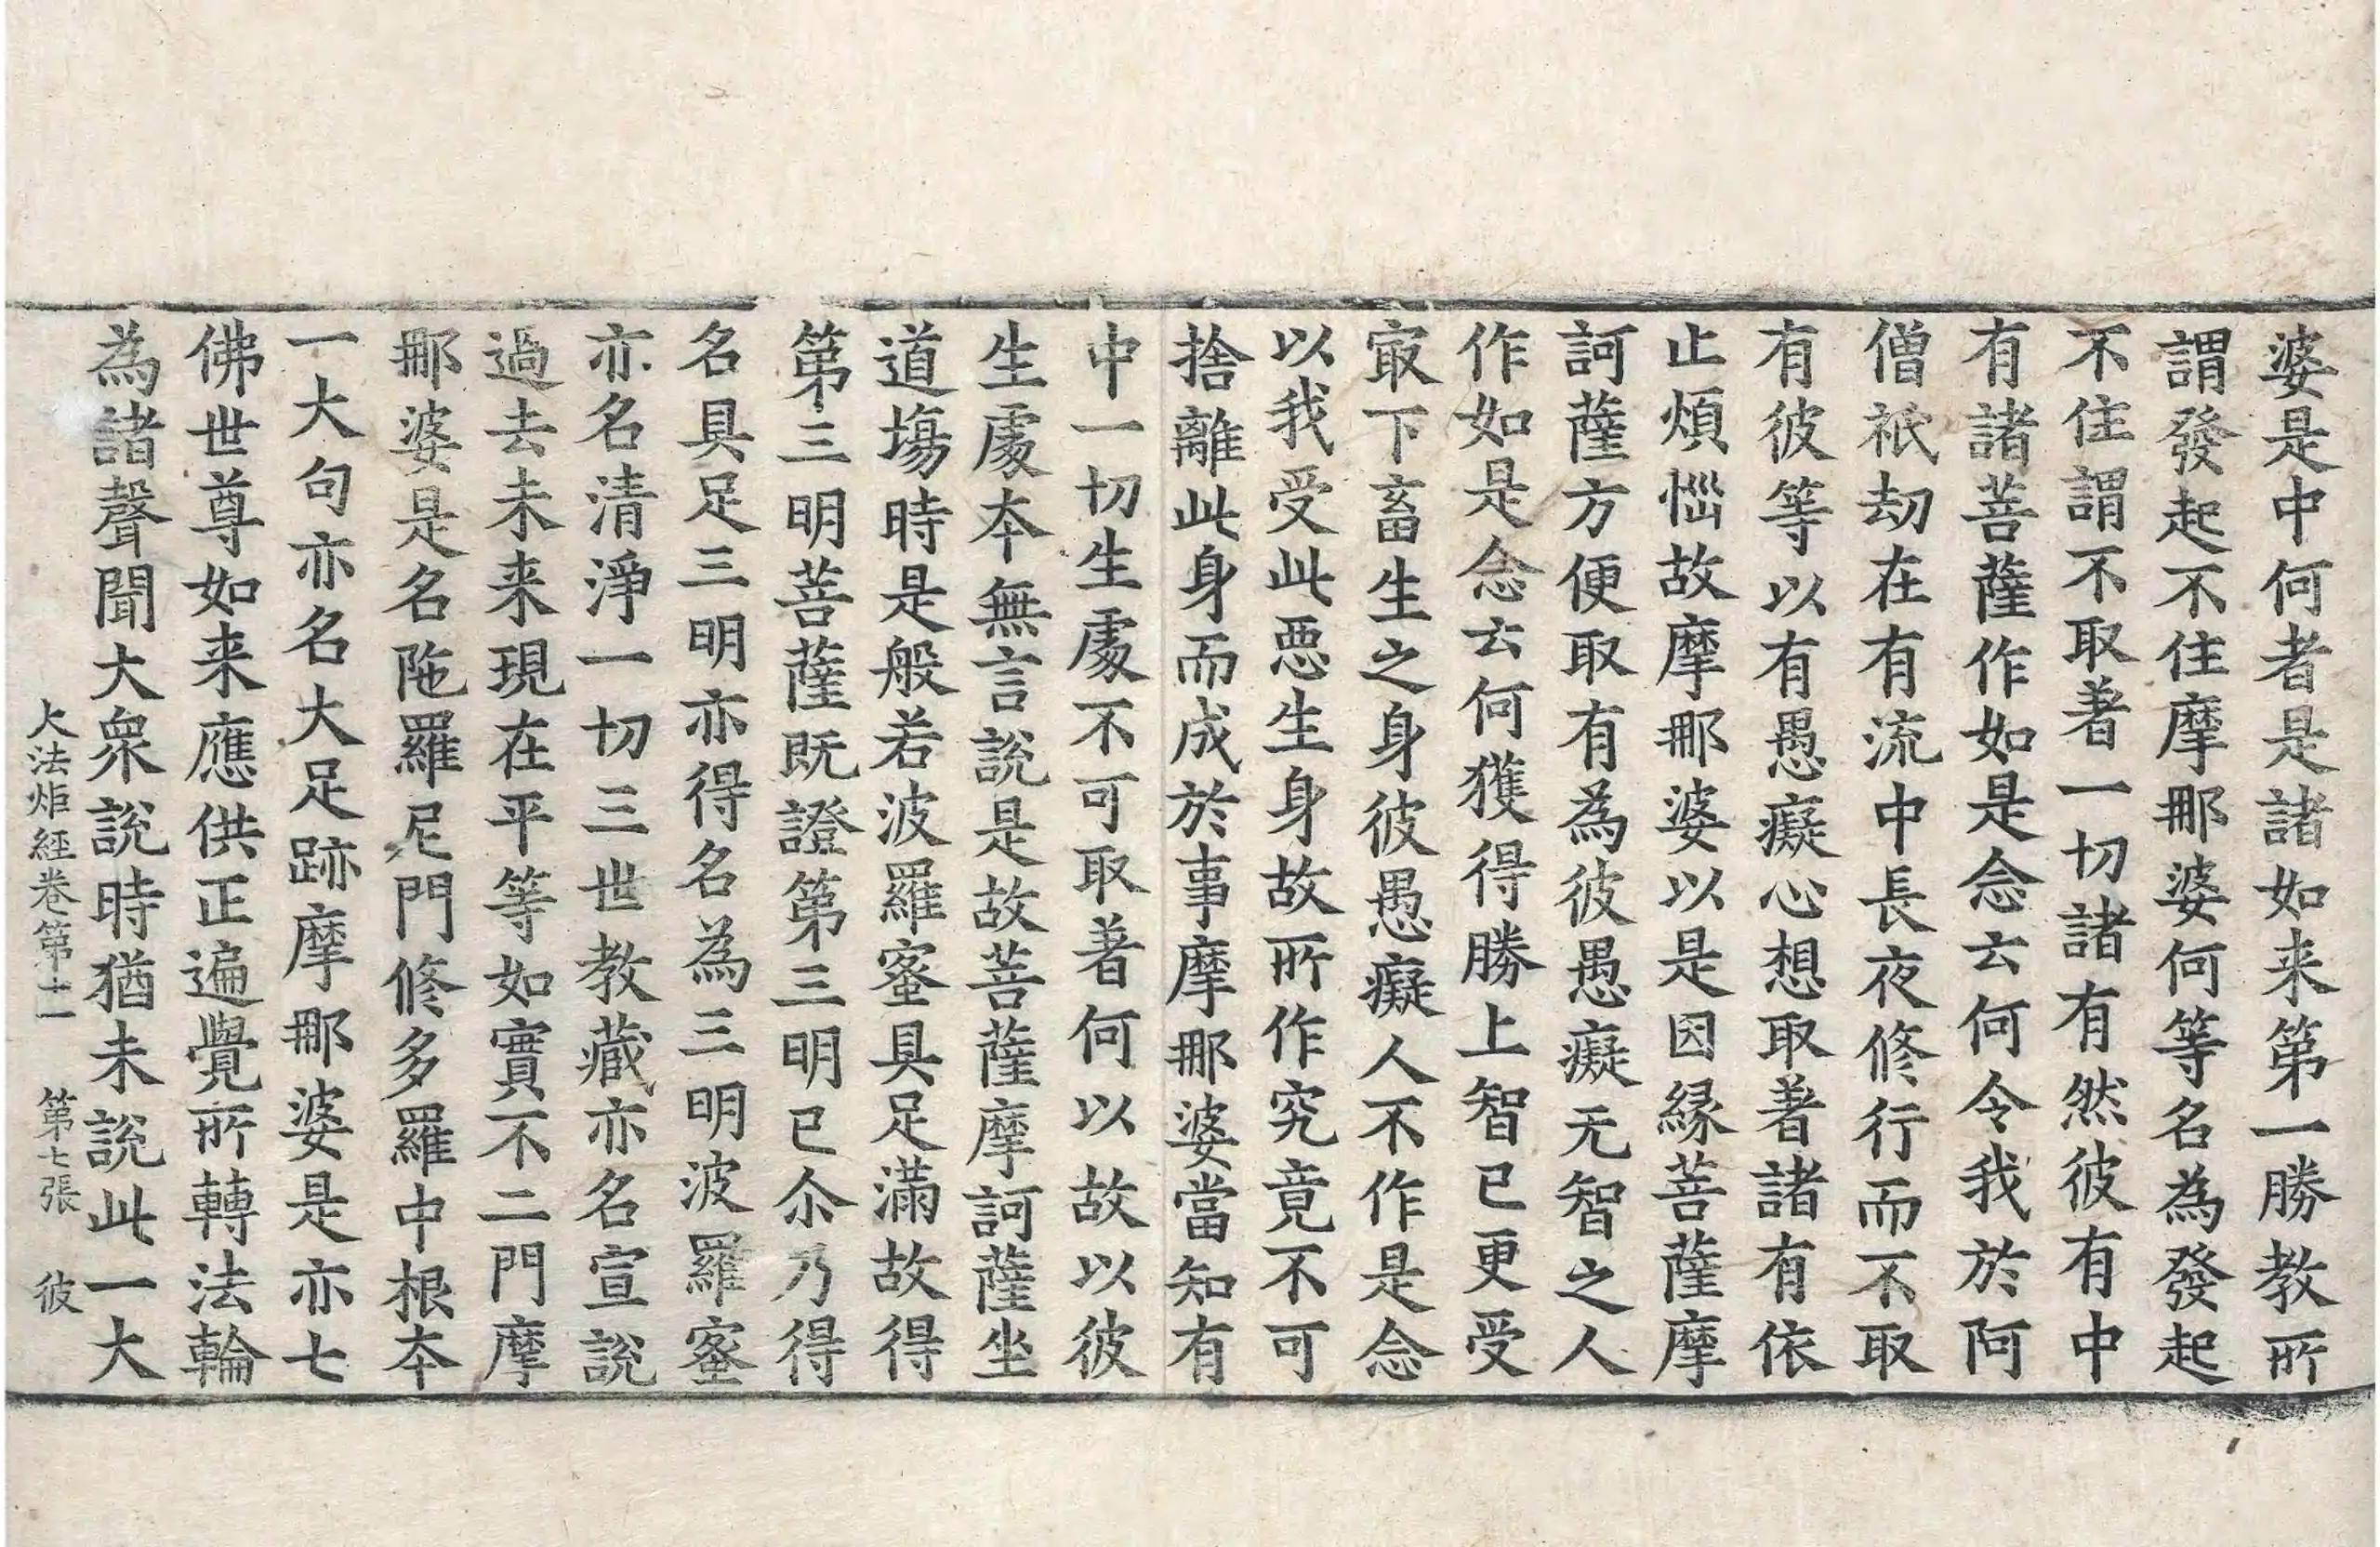 婆是中何者是諸如来第一勝教所
謂發起不住摩那婆何等名為發起
不住謂不取著一切諸有然彼有中
有諸菩薩作如是念云何令我於阿
僧祇劫在有流中長夜修行而不取
有彼等以有愚癡心想取著諸有依
止煩惱故摩那婆以是因緣菩薩摩
訶薩方便取有為彼愚癡无智之人
作如是念云何獲得勝上智已更受
㝡下畜生之身彼愚癡人不作是念
以我受此惡生身故所作究竟不可
捨離此身而成於事摩那婆當知有
中一切生處不可取著何以故以彼
生處本無言說是故菩薩摩訶薩坐
道場時是般若波羅蜜具足滿故得
第三明菩薩既證第三明已尒乃得
名具足三明亦得名為三明波羅蜜
亦名清淨一切三世教藏亦名宣說
過去未来現在平等如實不二門摩
那婆是名陁羅尼門修多羅中根本
一大句亦名大足跡摩那婆是亦七
佛世尊如来應供正遍覺所轉法輪
為諸聲聞大衆說時猶未說此一大
大法炬經卷第十一　第七張　彼